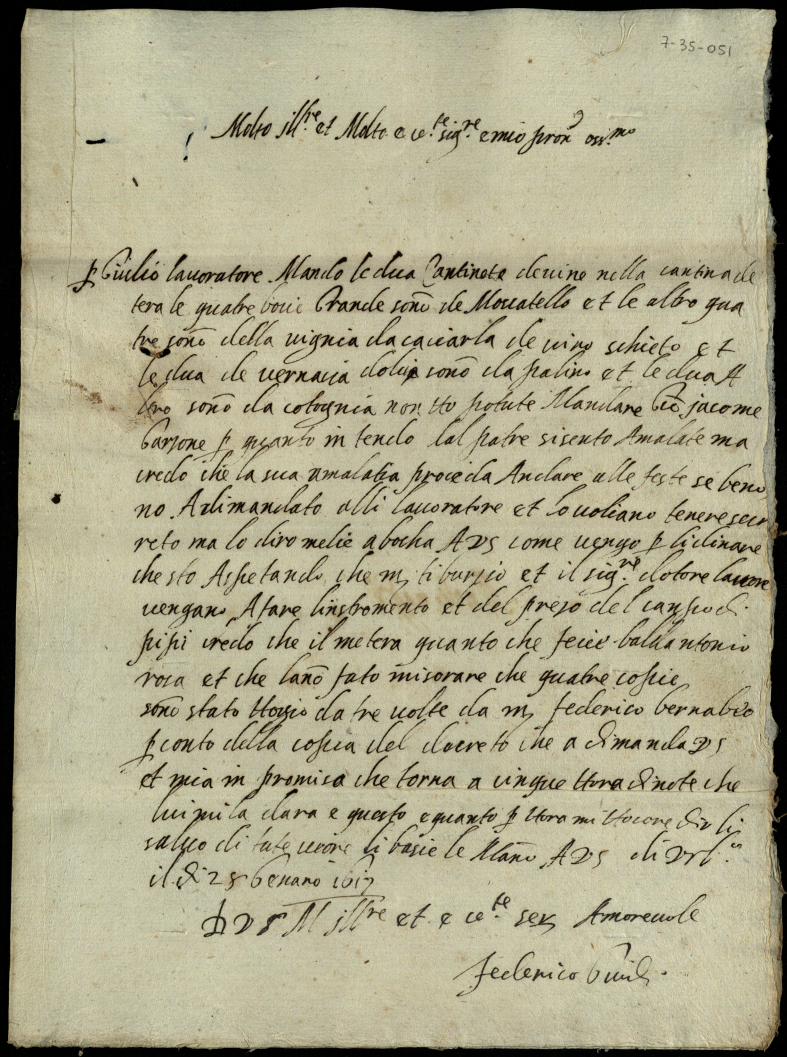 7-35-051
Molto Ill.re et Molto ecc.te sig.re e mio pron oss.mo
p Giulio lavoratore Mando le dua Cantinete de vino nella cantina de
tera le quatre bocie Grande sono de Moscatello et le altre qua
tre sono della vignia da caciarla de vino schieto et
le dua de vernacia dolcie sono da palino et le dua A
sono da cotognia non Ho potute Mandare Gio jacome
Garzone p quanto in tendo dal patre si sento Amalate ma
credo che la sua amalatia proceda Andare alle feste se bene
no Adimandato alli lavoratore et lo voliano tenere secr
reto ma lo diro melie a bocha A VS come vengo p li
che sto Aspetando che m tiburzio et il sig.re dotore
vengano A fare linstromento et del prezo del campo di
pipi credo che il metera quanto che fecie baldantonio
roca et che lano fato misorare che quatre copie
sono stato Hogio da tre volte da m federico bernabeo
p conto della copia del decreto che a dimanda VS
et mia in promisa che torna a cinque Hora di note che
lui mi la dara e questo e quanto p Hora mi Hocore dir li
saluo di tute core li bacie le Mano A VS di
il di 28 Genaro 1617
D VS M Ill.re et ecc.te ser Amorevole
federico Guidi